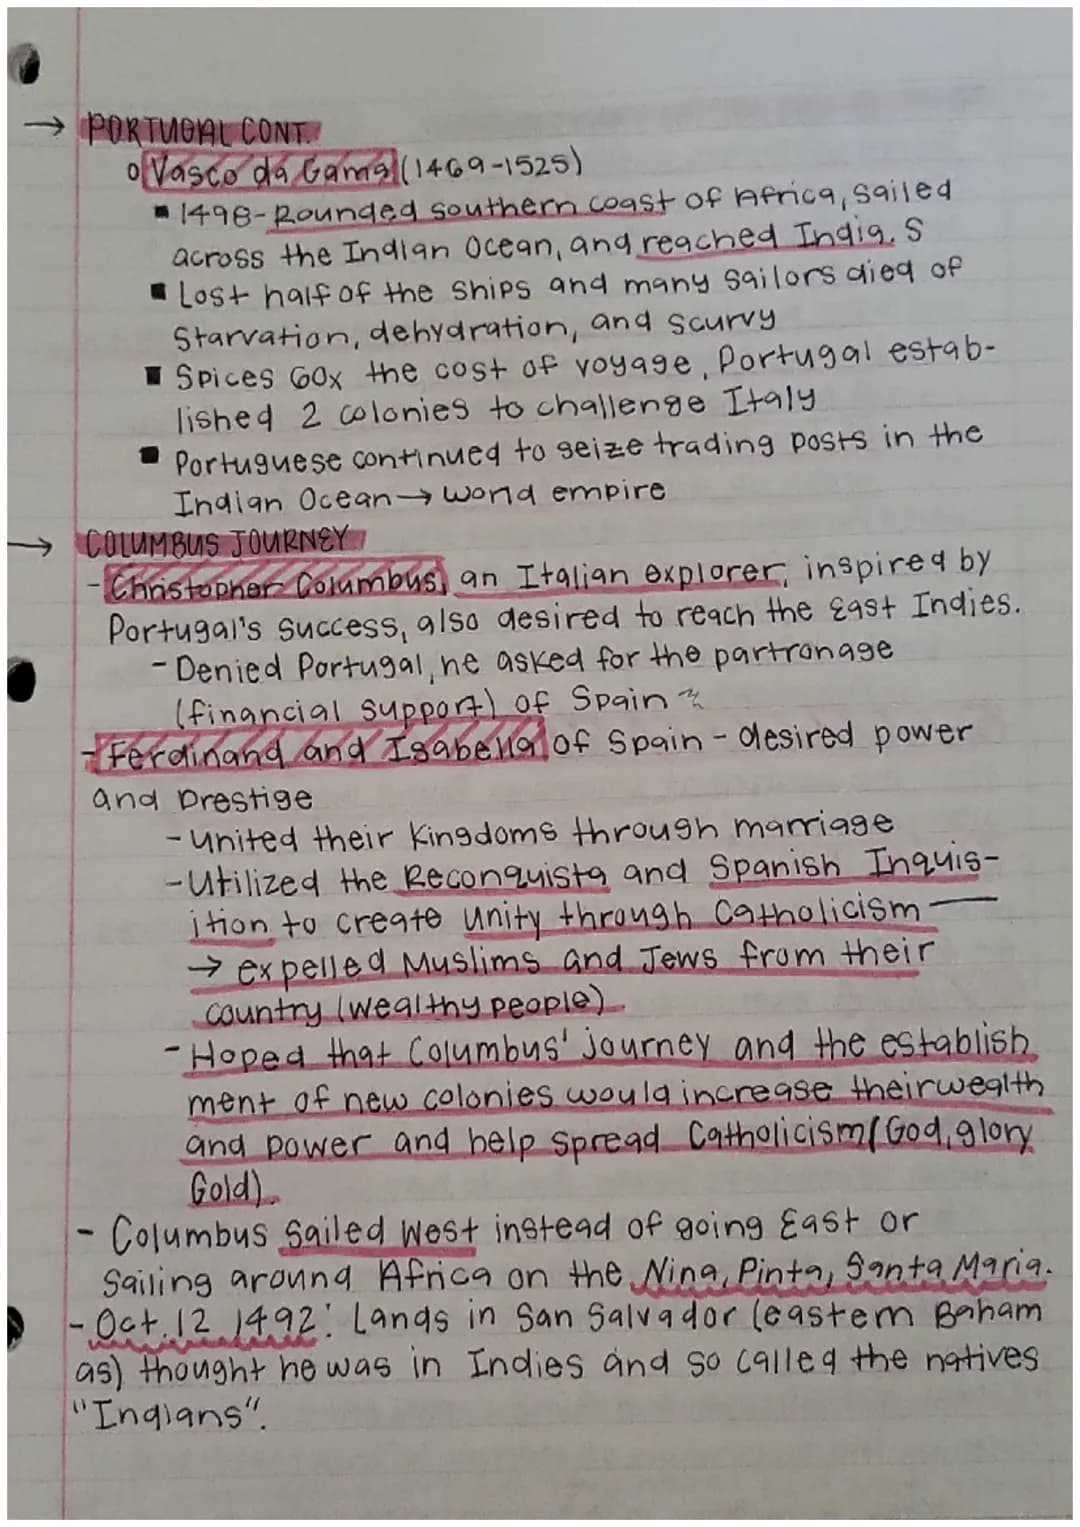 → PORTUGAL CONT.
o Vasco da Gama (1469-1525)
▪ 1498-Rounded southern coast of Africa, sailed
across the Indian Ocean, and reached India. S
▪ Lost half of the ships and many sailors died of
Starvation, dehydration, and scurvy
▪ Spices 60x the cost of voyage, Portugal estab-
lished 2 colonies to challenge Italy
▪ Portuguese continued to seize trading posts in the
Indian Ocean → world empire
→ COLUMBUS JOURNEY
- Christopher Columbus, an Italian explorer, inspired by
Portugal's success, also desired to reach the East Indies.
- Denied Portugal, he asked for the partronage
(financial support) of Spain
- Ferdinand and Isabella of Spain - desired power
and prestige
- United their kingdoms through marriage
- Utilized the Reconquista and Spanish Inquis-
ition to create unity through Catholicism —
→ expelled Muslims and Jews from their
country (wealthy people)
- Hoped that Columbus' journey and the establish
ment of new colonies would increase their wealth
and power and help spread Catholicism (God, glory
Gold).
- Columbus sailed west instead of going East or
sailing around Africa on the Nina, Pinta, Santa Maria.
- Oct. 12 1492: Lands in San Salvador (eastern Baham
as) thought he was in Indies and so called the natives
"Indians".